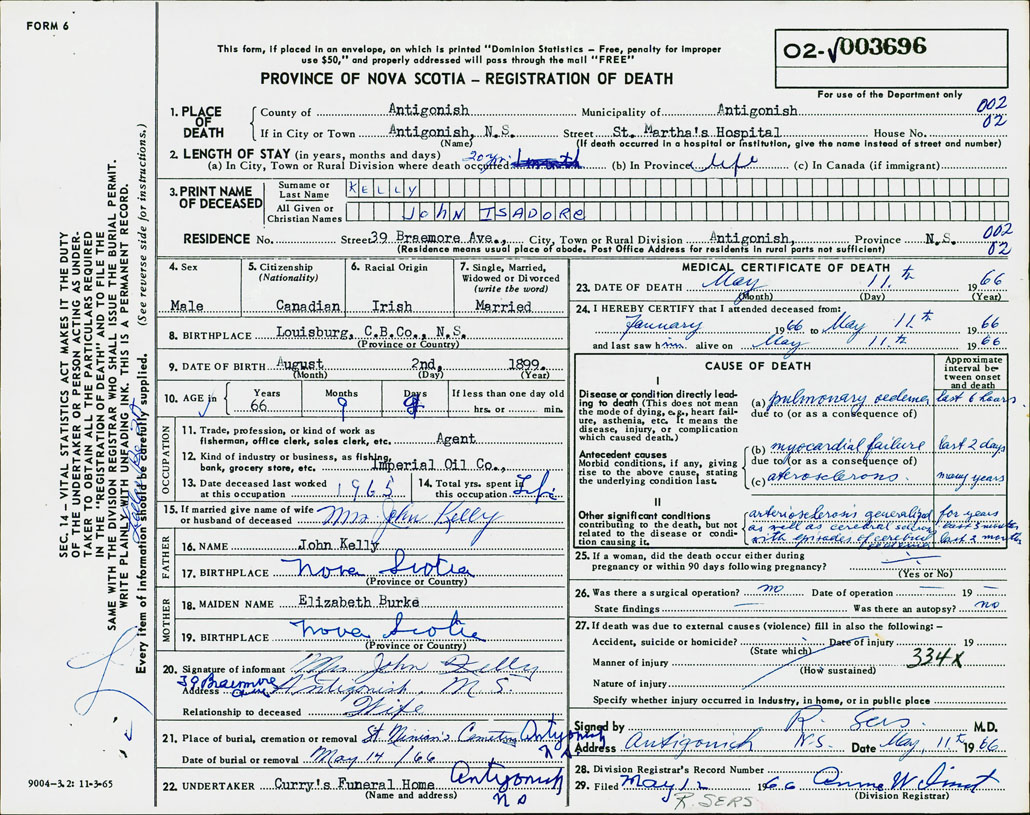 FORM 6
This form, if placed in an envelope, on which is printed "Dominion Statistics – Free, penalty for improper
use $50," and properly addressed will pass through the mail "FREE"
PROVINCE OF NOVA SCOTIA – REGISTRATION OF DEATH
02-√003696
For use of the Department only
1. PLACE OF DEATH County of Antigonish Municipality of Antigonish 002
If in City or Town Antigonish, N.S. Street St. Martha's Hospital House No. 02
(Name) (If death occurred in a hospital or institution, give the name instead of street and number)
2. LENGTH OF STAY (in years, months and days)
(a) In City, Town or Rural Division where death occurred 20 yrs. (b) In Province life (c) In Canada (if immigrant)
3. PRINT NAME OF DECEASED Surname or Last Name KELLY
All Given or Christian Names JOHN ISADORE
RESIDENCE No. Street 39 Braemore Ave., City, Town or Rural Division Antigonish, Province N.S. 002 02
(Residence means usual place of abode. Post Office Address for residents in rural parts not sufficient)
4. Sex Male
5. Citizenship (Nationality) Canadian
6. Racial Origin Irish
7. Single, Married, Widowed or Divorced (write the word) Married
8. BIRTHPLACE Louisburg, C.B.Co., N.S.
(Province or Country)
9. DATE OF BIRTH August 2nd, 1899.
(Month) (Day) (Year)
10. AGE in Years 66 Months 9 Days 9 If less than one day old hrs. or min.
OCCUPATION
11. Trade, profession, or kind of work as
fisherman, office clerk, sales clerk, etc. Agent
12. Kind of industry or business, as fishing,
bank, grocery store, etc. Imperial Oil Co.,
13. Date deceased last worked at this occupation 1965
14. Total yrs. spent in this occupation Life
15. If married give name of wife or husband of deceased Mrs John Kelly
FATHER
16. NAME John Kelly
17. BIRTHPLACE Nova Scotia
(Province or Country)
MOTHER
18. MAIDEN NAME Elizabeth Burke
19. BIRTHPLACE Nova Scotia
(Province or Country)
20. Signature of informant Mrs John Kelly
Address 39 Braemore Ave Antigonish, N.S.
Relationship to deceased Wife
21. Place of burial, cremation or removal St Ninian's Cemetery Antigonish N.S.
Date of burial or removal May 14 /66
22. UNDERTAKER Curry's Funeral Home Antigonish N S
(Name and address)
MEDICAL CERTIFICATE OF DEATH
23. DATE OF DEATH May 11th 1966
(Month) (Day) (Year)
24. I HEREBY CERTIFY that I attended deceased from:
January 1966 to May 11th 1966
and last saw him alive on May 11th 1966
CAUSE OF DEATH
Approximate interval between onset and death
I
Disease or condition directly leading to death (This does not mean the mode of dying, e.g., heart failure, asthenia, etc. It means the disease, injury, or complication which caused death.)
(a) pulmonary oedema last 6 hours
due to (or as a consequence of)
Antecedent causes
Morbid conditions, if any, giving rise to the above cause, stating the underlying condition last.
(b) myocardial failure last 2 days
due to (or as a consequence of)
(c) aterosclerons. many years
II
Other significant conditions
contributing to the death, but not related to the disease or condition causing it.
arteriosclerosis generalized for years
as well as cerebral last 3
with episodes of cerebral last 2 months
25. If a woman, did the death occur either during
pregnancy or within 90 days following pregnancy?
(Yes or No)
26. Was there a surgical operation? no Date of operation — 19 —
State findings — Was there an autopsy? no
27. If death was due to external causes (violence) fill in also the following: –
Accident, suicide or homicide? Date of injury 19
(State which)
Manner of injury 334X
(How sustained)
Nature of injury
Specify whether injury occurred in industry, in home, or in public place
Signed by R. Sers. M.D.
Address Antigonish N.S. Date May, 11th 1966
28. Division Registrar's Record Number
29. Filed May 12 1966
(Division Registrar)
R. SERS
SEC. 14 – VITAL STATISTICS ACT MAKES IT THE DUTY
OF THE UNDERTAKER OR PERSON ACTING AS UNDER-
TAKER TO OBTAIN ALL THE PARTICULARS REQUIRED
IN THE "REGISTRATION OF DEATH" AND TO FILE THE
SAME WITH THE DIVISION REGISTRAR WHO SHALL ISSUE THE BURIAL PERMIT.
WRITE PLAINLY WITH UNFADING INK. THIS IS A PERMANENT RECORD.
Every item of information should be carefully supplied. (See reverse side for instructions.)
9004-3.2: 11-3-65